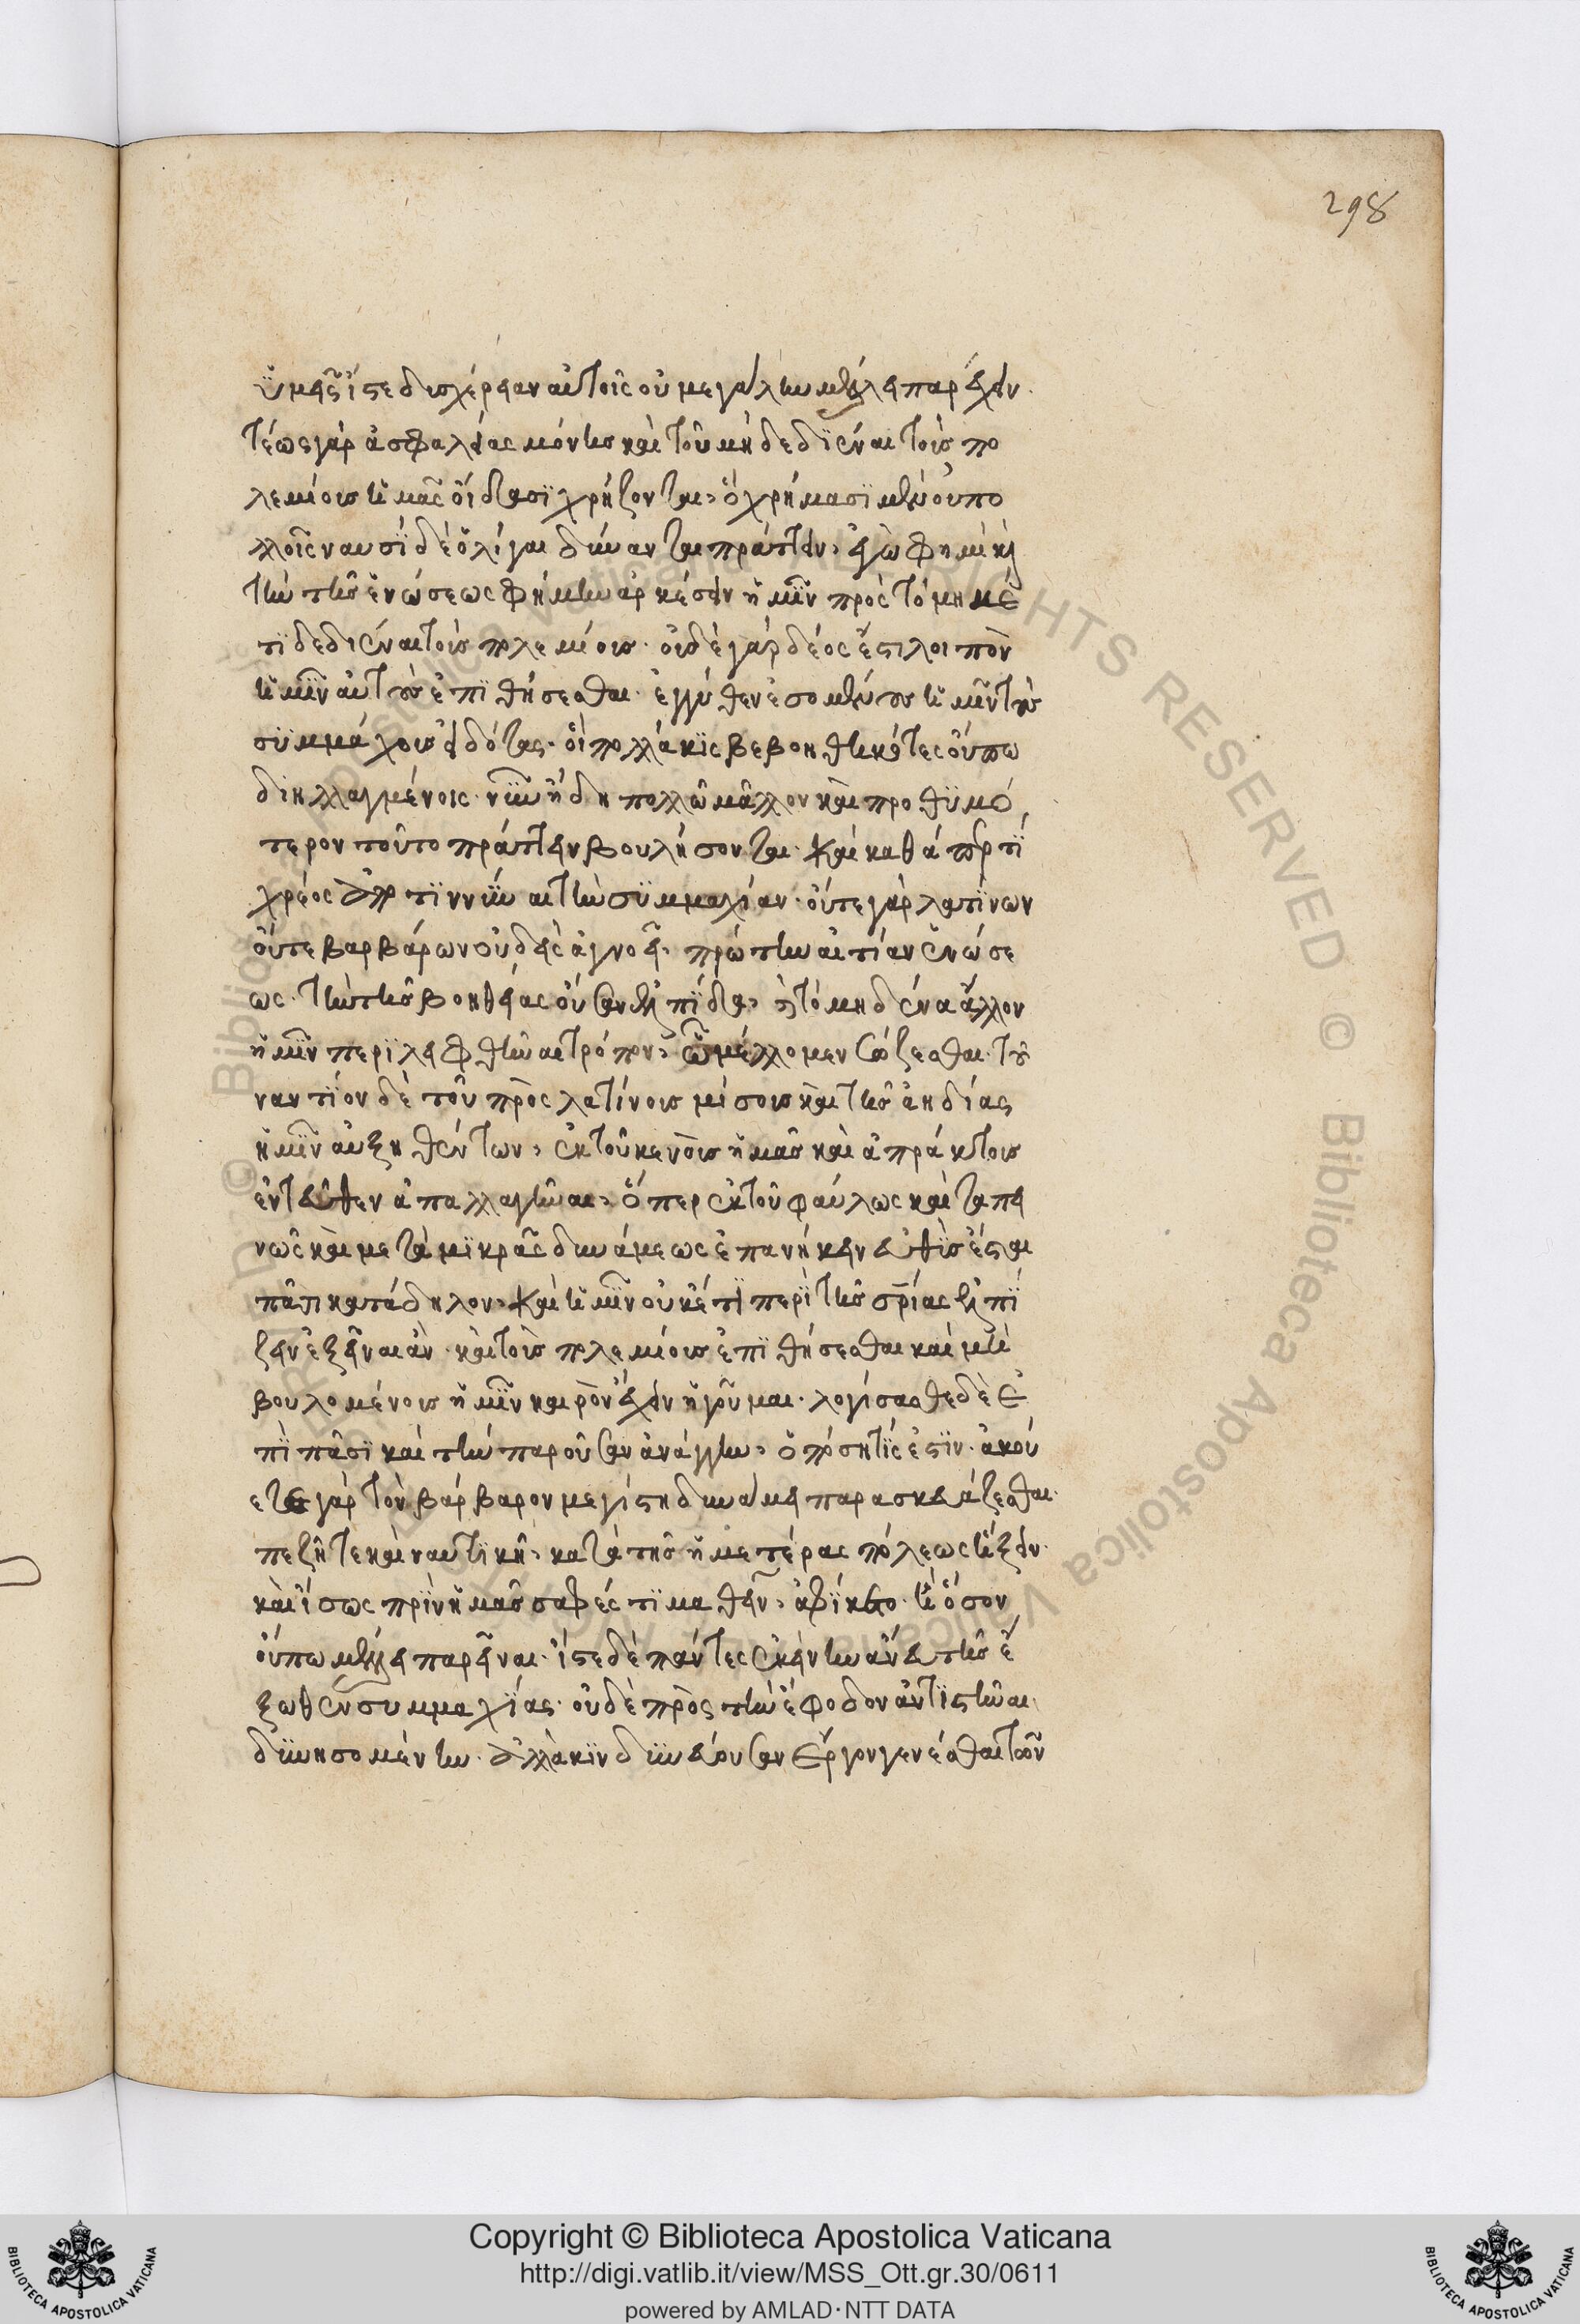 298
ὑμεῖς ἴστε δυσχέρειαν αὐτοῖς οὐ μεγάλην μέλλει παρέχειν.
τέως γὰρ ἀσφαλείας μόνης καὶ τοῦ μὴ δεδιέναι τοὺς πο
λεμίους ὑμᾶς οἴδασι χρήζοντας, ὃ χρήμασι μὲν οὐ πο
λλοῖς ναυσὶ δὲ ὀλίγαι δύνανται πράττειν, ἐγὼ φημὶ καὶ
τὴν τῆς ἑνώσεως φήμην ἀρκέσειν ἡμῖν πρὸς τὸ μηκέ
τι δεδιέναι τοὺς πολεμίους. οὐδὲ γὰρ δέος ἔστι λοιπὸν
ὑμῖν αὐτοὺς ἐπιθήσεσθαι. ἐγγύθεν ἐσομένους ὑμῖν τοὺς
συμμάχους εἰδότας. οἳ πολλάκις βεβοηθηκότες οὔπω
διηλλαγμένοις. νῦν ἤδη πολλῷ μᾶλλον καὶ προθυμό
τερον τοῦτο πράττειν βουλήσονται. καὶ καθάπερ τι
χρέος ἀποτιννύναι τὴν συμμαχίαν. οὔτε γὰρ λατίνων
οὔτε βαρβάρων οὐδεὶς ἀγνοεῖ. πρώτην αἰτίαν ἑνώσε
ως. τὴν τῆς βοηθείας οὖσαν ἐλπίδα, καὶ τὸ μηδένα ἄλλον
ἡμῖν περιλειφθῆναι τρόπον, ᾧ μέλλομεν σώζεσθαι. τοὐ
ναντίον δὲ τοῦ πρὸς λατίνους μίσους καὶ τῆς ἀηδίας
ἡμῖν αὐξηθέντων, ἐκ τοῦ κενοὺς ἡμᾶς καὶ ἀπράκτους
ἐντεῦθεν ἀπαλλαγῆναι, ὅπερ ἐκ τοῦ φαύλως καὶ ταπει
νῶς καὶ μετὰ μικρᾶς δυνάμεως ἐπανήκειν εὐθὺς ἔσται
πᾶσι κατάδηλον, καὶ ὑμῖν οὐκέτι περὶ τῆς σωτηρίας ἐλπί
ζειν ἐξεῖναι ἂν. καὶ τοὺς πολεμίους ἐπιθήσεσθαι καὶ μὴ
βουλομένους ἡμῖν καιρὸν ἔχειν ἡγοῦμαι. λογίσασθε δὲ ἐ
πὶ πᾶσι καὶ τὴν παροῦσαν ἀνάγκην, ὁπόση τίς ἐστιν. ἀκού
εται γὰρ τὸν βάρβαρον μεγίστη δυνάμει παρασκευάζεσθαι.
πεζῇ τε καὶ ναυτικῇ, κατὰ τῆς ἡμετέρας πόλεως ἥξειν.
καὶ ἴσως πρὶν ἡμᾶς σαφές τι μαθεῖν, ἀφίκετο. ἢ ὅσον
οὔπω μέλλει παρεῖναι. ἴστε δὲ πάντες ἐκείνην ἄνευ τῆς ἔ
ξωθεν συμμαχίας. οὐδὲ πρὸς τὴν ἔφοδον ἀντιστῆναι
δυνησομένην. ἀλλὰ κινδυνεύουσαν ἔργον γενέσθαι τῶν
Copyright © Biblioteca Apostolica Vaticana
http://digi.vatlib.it/view/MSS_Ott.gr.30/0611
powered by AMLAD·NTT DATA